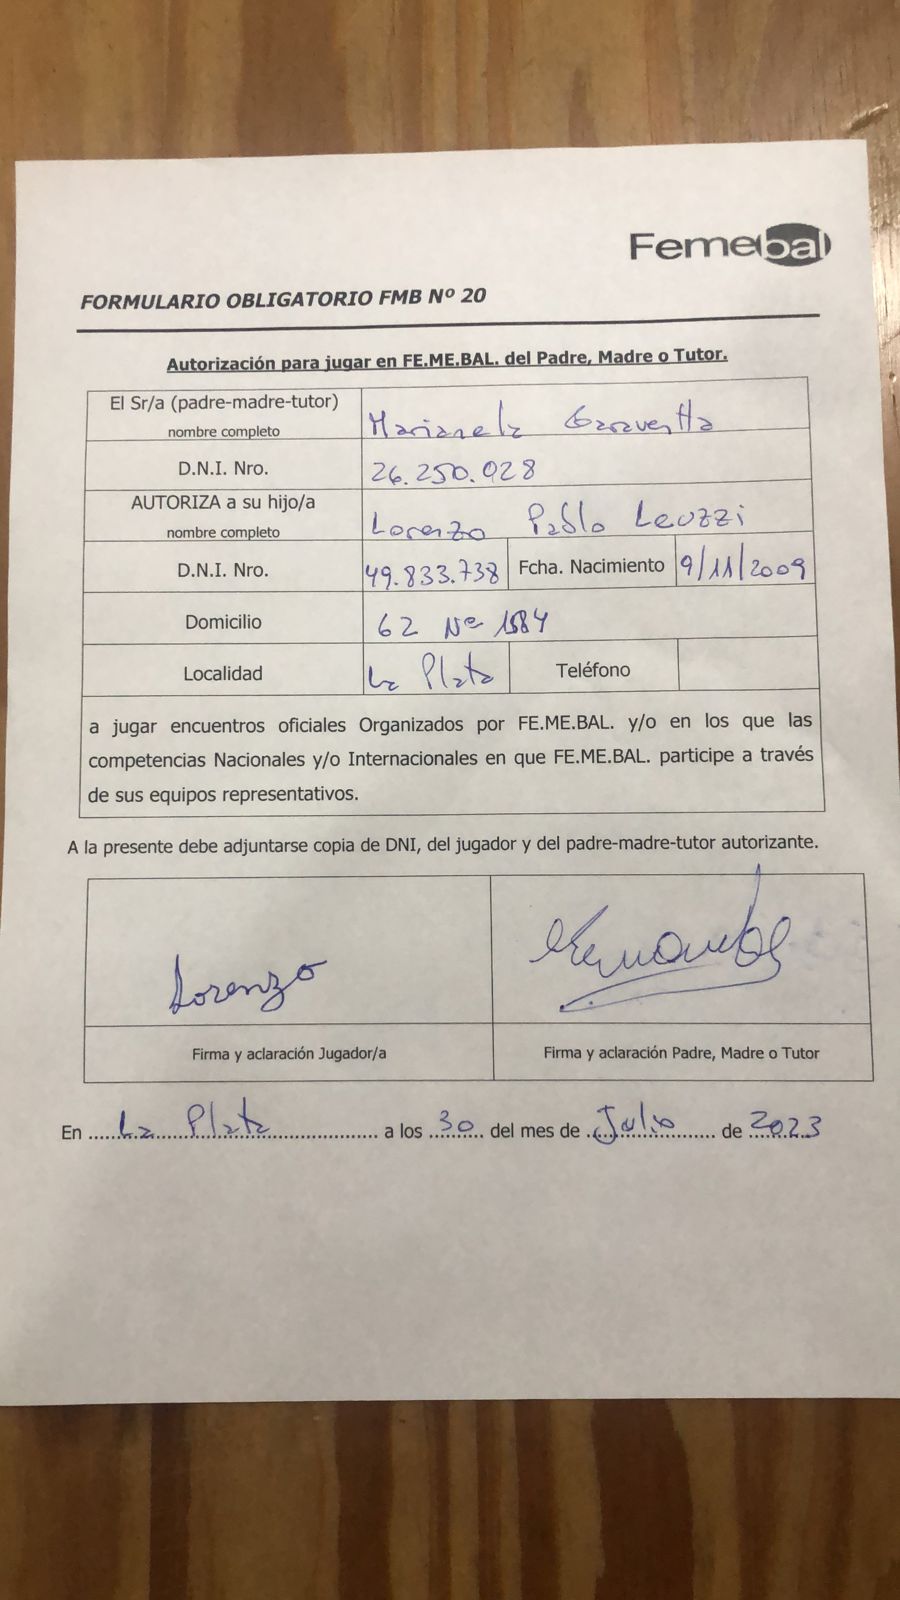 Femebal
FORMULARIO OBLIGATORIO FMB Nº 20
Autorización para jugar en FE.ME.BAL. del Padre, Madre o Tutor.
El Sr/a (padre-madre-tutor)
nombre completo
Marianela Garaventta
D.N.I. Nro.
26.250.028
AUTORIZA a su hijo/a
nombre completo
Lorenzo Pablo Leuzzi
D.N.I. Nro.
49.833.738
Fcha. Nacimiento
9/11/2009
Domicilio
62 Nº 1584
Localidad
La Plata
Teléfono
a jugar encuentros oficiales Organizados por FE.ME.BAL. y/o en los que las
competencias Nacionales y/o Internacionales en que FE.ME.BAL. participe a través
de sus equipos representativos.
A la presente debe adjuntarse copia de DNI, del jugador y del padre-madre-tutor autorizante.
Lorenzo
Firma y aclaración Jugador/a
Firma y aclaración Padre, Madre o Tutor
En La Plata a los 30 del mes de Julio de 2023